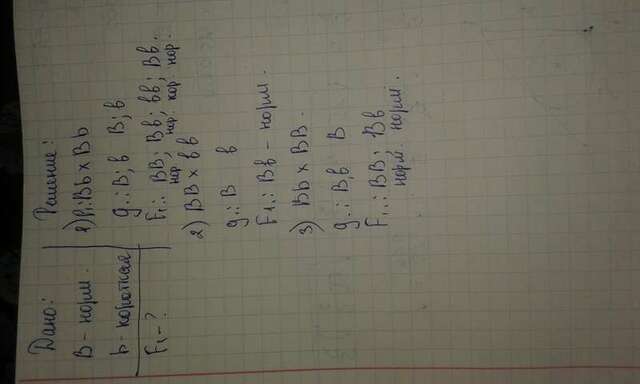 Дано:
B - норм.
b - короткая
F₁ - ?
Решение:
1) P: Bb x Bb
g.: B; b B; b
F₁.: BB; Bb; bb; Bb.
нор. нор. кор. нор.
2) BB x bb
g.: B b
F1.: Bb - норм.
3) Bb x BB.
g.: B, b B
F₁.: BB; Bb
норм. норм.